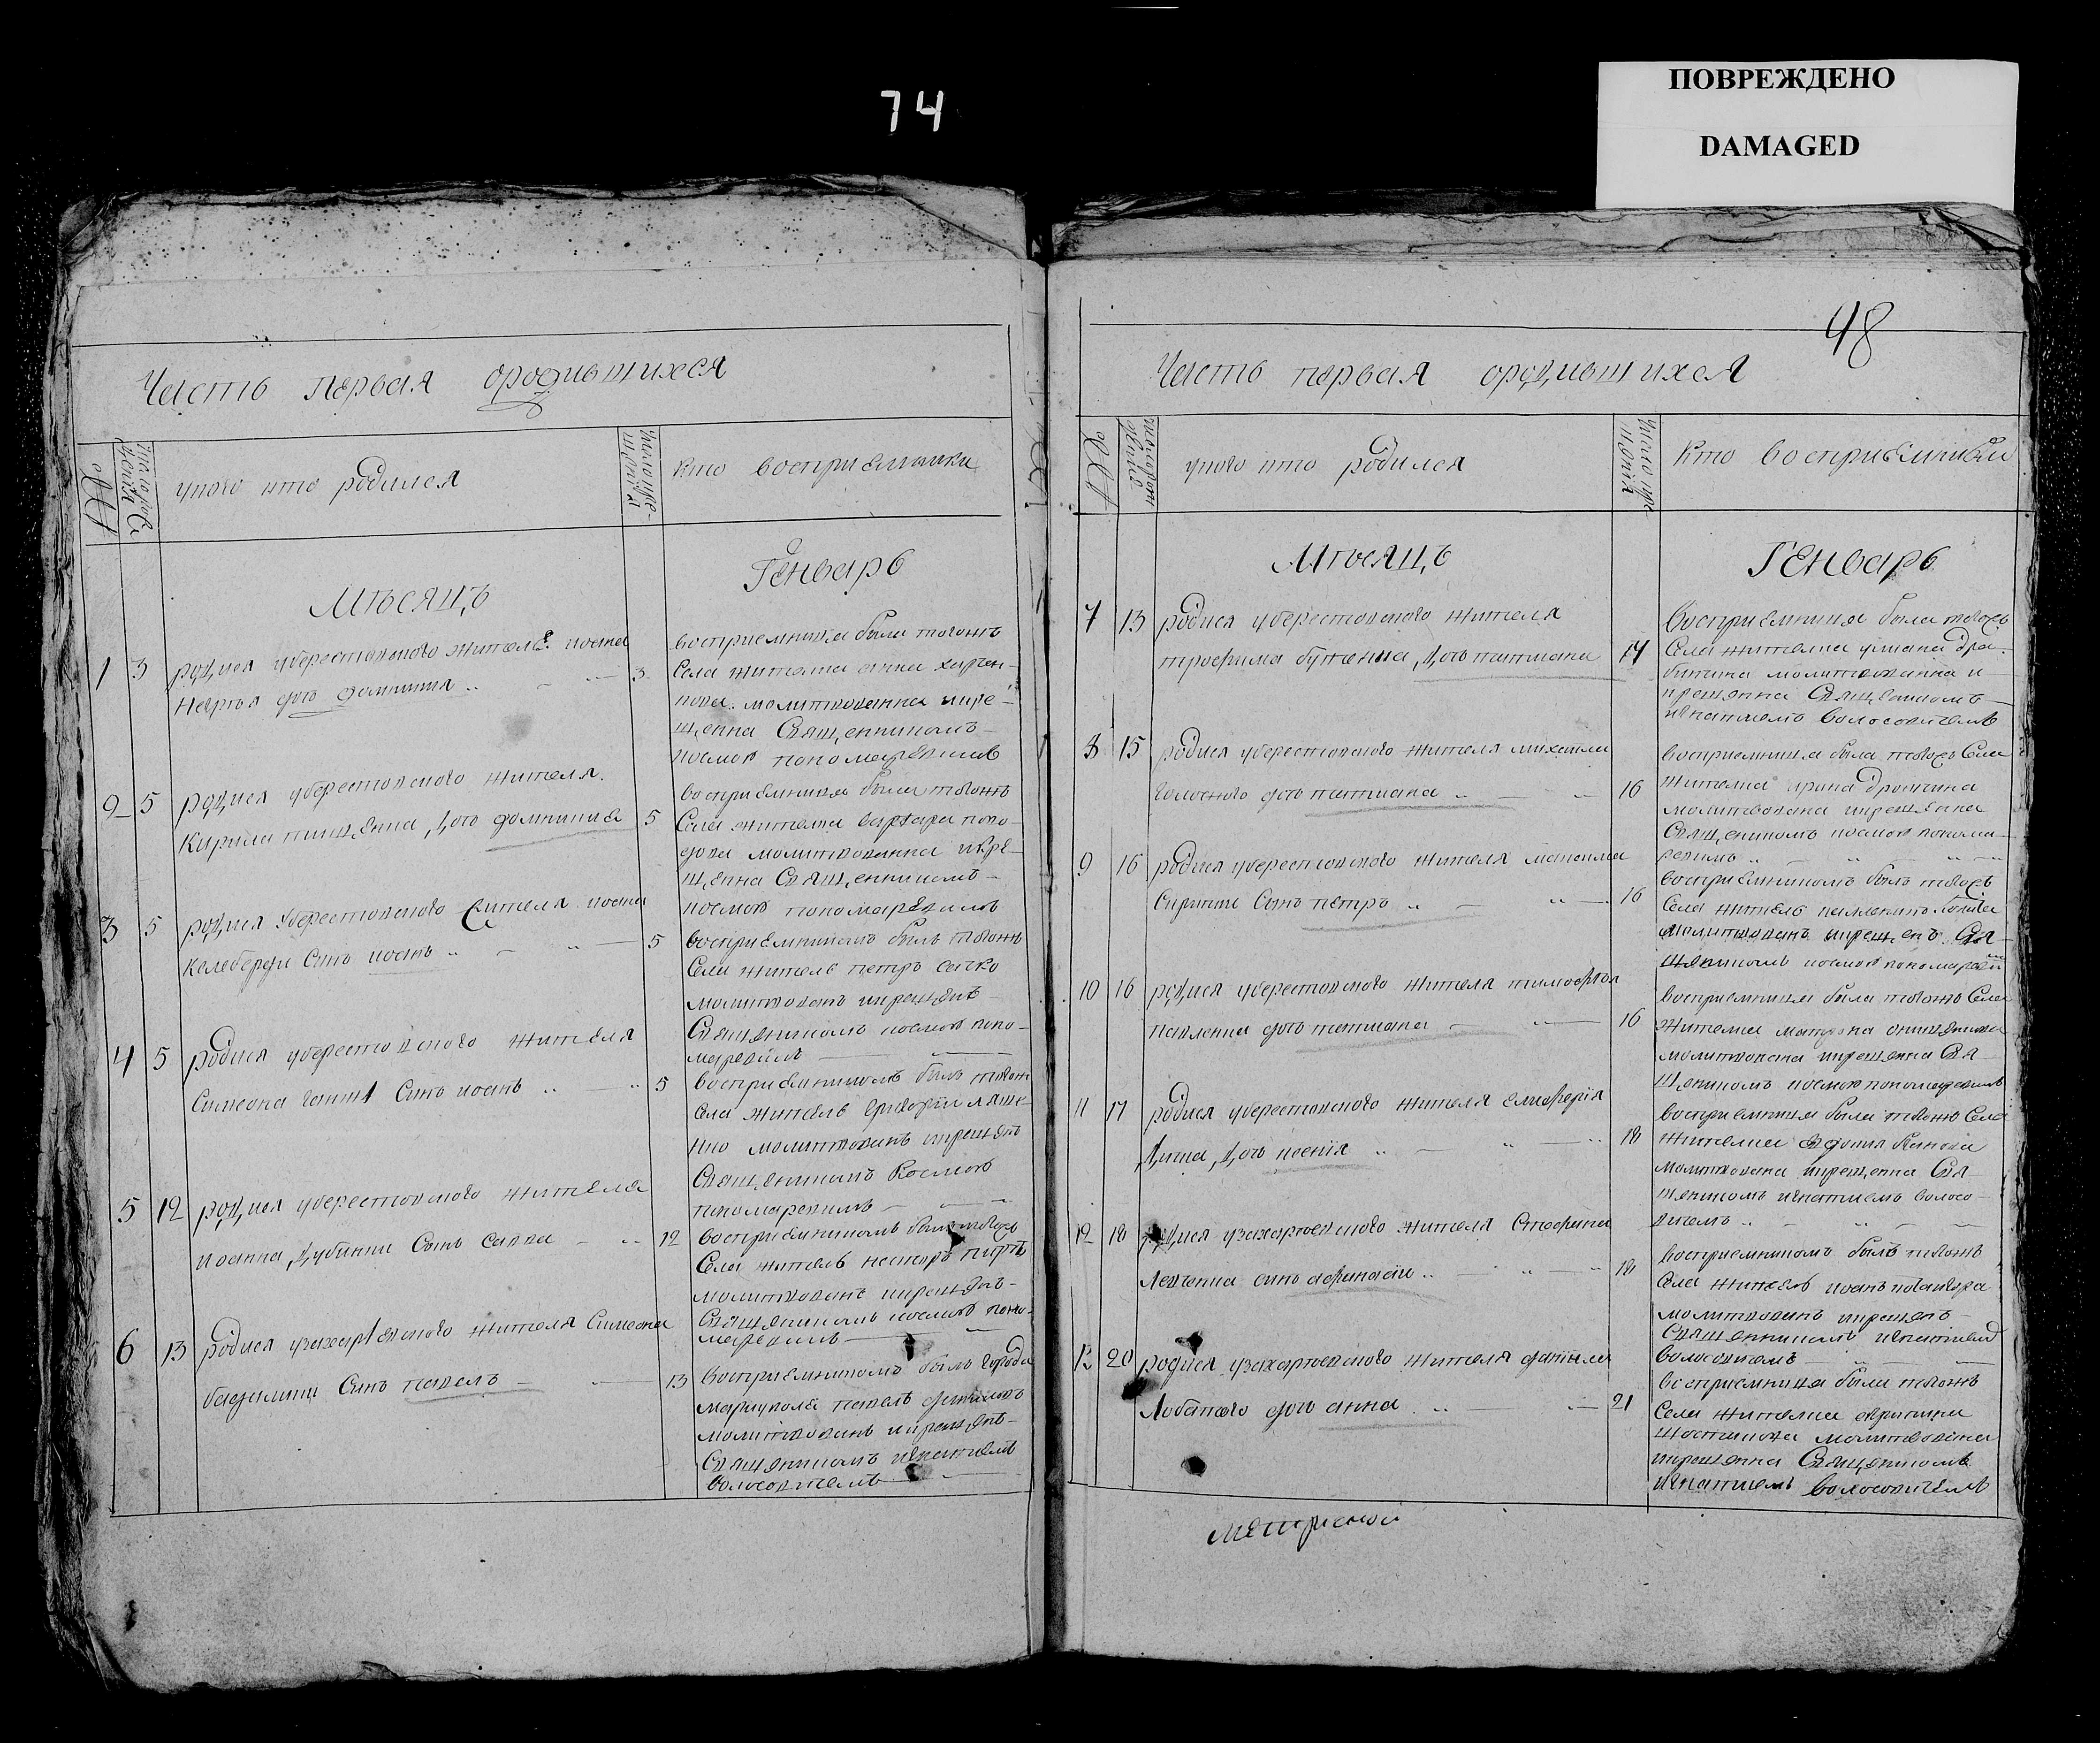 74
ПОВРЕЖДЕНО
DAMAGED
Часть первая ородившихся
№
число рож
дения
укого кто родился
число кре-
щения
кто восприемники
Мѣсяцъ
Генварь
1 3 родися уберестовского жителя
дочь домникия 3
восприемница была тогожъ
Села жителка анна
молитвованна икре-
щенна Священникомъ
космою пономаревимъ
2 5 родися уберестовского жителя
Кирила пищенка дочь домникия 5
восприемница была тогожъ
Села жителка варвара попо-
молитвованна икре-
щенна Священникомъ
космою пономаревимъ
3 5 родися уберестовского жителя иоана
калеберди Синъ иоанъ 5
восприемникомъ былъ тогожъ
Села житель петръ сычко
молитвованъ икрещенъ
Священникомъ космою поно-
маревимъ
4 5 родися уберестовского жителя
Симеона Синъ иоанъ 5
восприемникомъ былъ тогожъ
Села житель григорий ляш-
молитвованъ икрещенъ
Священникомъ Космою
пономаревимъ
5 12 родися уберестовского жителя
иоанна дубини Синъ савва 12
восприемникомъ былъ тогожъ
Села житель несторъ
молитвованъ икрещенъ
Священникомъ космою поно-
маревимъ
6 13 родися узахарьевского жителя Симеона
Синъ павелъ 13
восприемникомъ былъ города
мариуполя павелъ
молитвованъ икрещенъ
Священникомъ игнатиемъ
волосовичемъ
48
Часть первая ородившихся
№
число рож
дения
укого кто родился
число кре-
щения
Кто восприемники
Мѣсяцъ
Генварь
7 13 родися уберестовского жителя
трофима бутенка дочь татиана 14
Восприемница была тогожъ
Села жителка
молитвованна и
крещенна Священникомъ
игнатиемъ волосовичемъ
8 15 родися уберестовского жителя михаила
дочь татиана 16
восприемница была тогожъ Села
жителка ирина
молитвована икрещенна
Священникомъ космою понома-
ревимъ
9 16 родися уберестовского жителя
Синъ петръ 16
восприемникомъ былъ тогожъ
Села житель
молитвованъ икрещенъ Свя-
щенникомъ космою пономареви
10 16 родися уберестовского жителя тимофея
павленка дочь татиана 16
восприемница была тогожъ Села
жителка матрона онищенкова
молитвована икрещенна Свя-
щенникомъ космою пономаревимъ
11 17 родися уберестовского жителя елиферия
дочь ксения 18
восприемница была тогожъ Села
жителка
молитвована икрещенна Свя-
щенникомъ игнатиемъ волосо-
вичемъ
12 18 родися узахарьевского жителя Стефана
Левченка синъ афанасий 18
восприемникомъ былъ тогожъ
Села житель иоанъ
молитвованъ икрещенъ
Священникомъ игнатиемъ
волосовичемъ
13 20 родися узахарьевского жителя данила
Лобатого дочь анна 21
восприемница была тогожъ
Села жителка
молитвована
икрещенна Священникомъ
игнатиемъ волосовичемъ